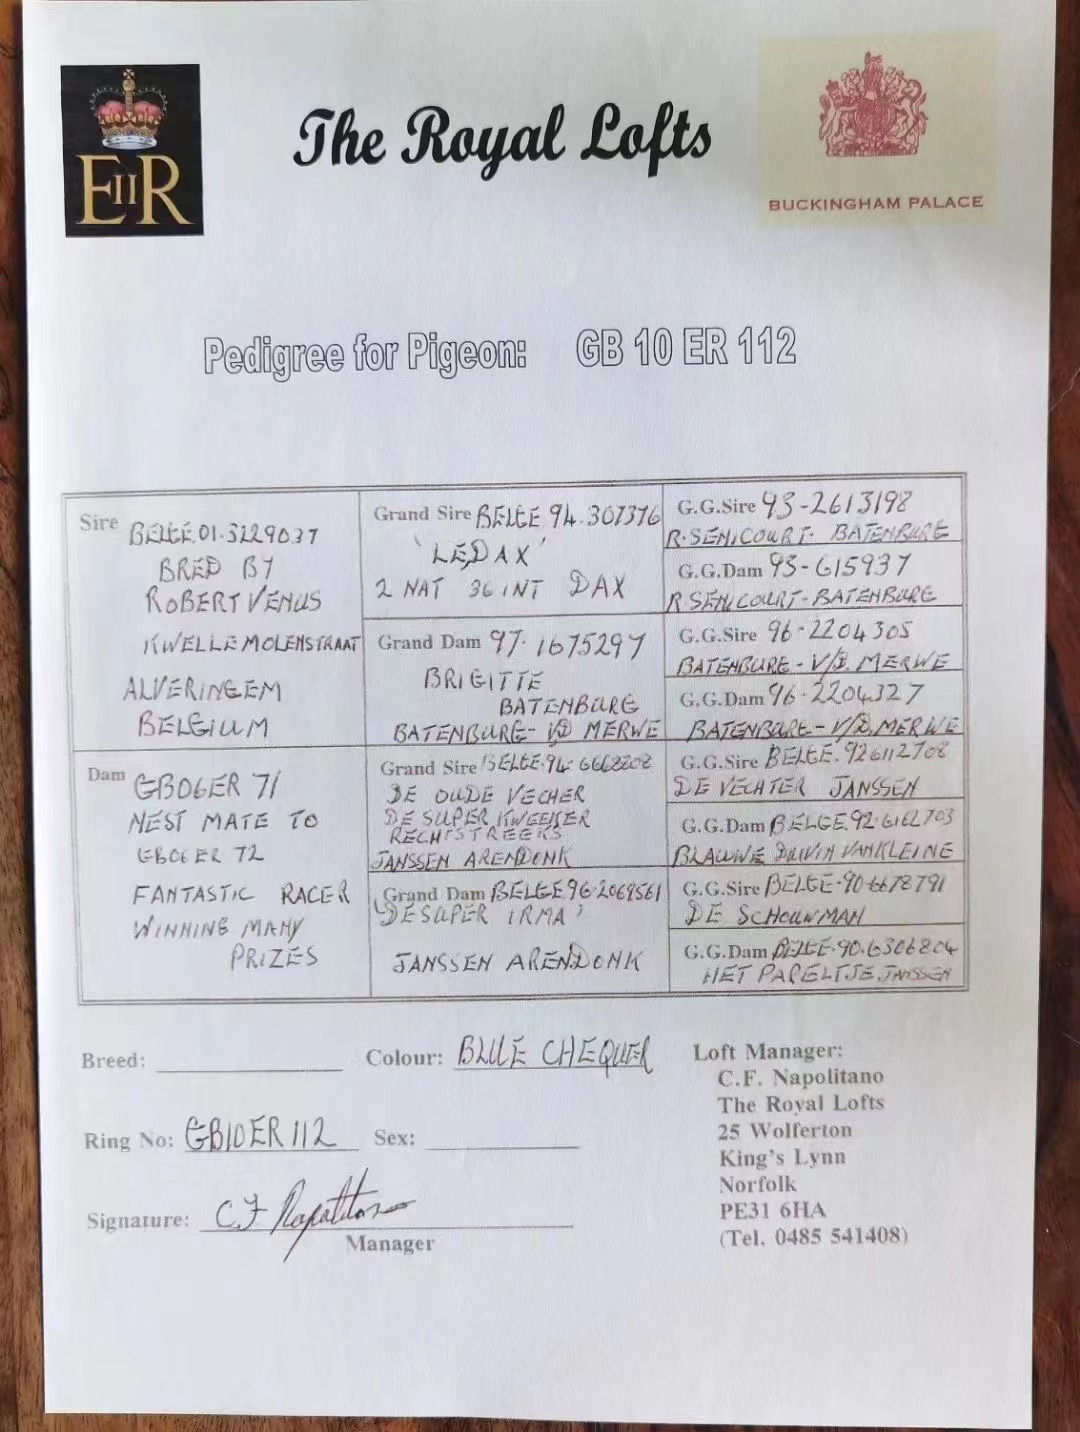 EIIR
The Royal Lofts
BUCKINGHAM PALACE
Pedigree for Pigeon: GB 10 ER 112
Sire BELGE.01.3229037
BRED BY
ROBERT VENUS
KWELLEMOLENSTRAAT
ALVERINGEM
BELGIUM
Grand Sire BELGE 94.307376
'LE DAX'
2 NAT 36 INT DAX
Grand Dam 97.1675297
BRIGITTE
BATENBURG
BATENBURG- V/D MERWE
G.G.Sire 93-2613198
R.SENICOURT- BATENBURG
G.G.Dam 93-615937
R.SENICOURT-BATENBURG
G.G.Sire 96-2204305
BATENBURG - V/D. MERWE
G.G.Dam 96-2204327
BATENBURG - V/D. MERWE
Dam GB06ER 71
NEST MATE TO
GB06ER 72
FANTASTIC RACER
WINNING MANY
PRIZES
Grand Sire BELGE.94.6668208
DE OUDE VECHER
DE SUPER KWEEKER
RECHTSTREEKS
JANSSEN ARENDONK
Grand Dam BELGE 96.2069561
'DE SUPER IRMA'
JANSSEN ARENDONK
G.G.Sire BELGE.926112708
DE VECHTER JANSSEN
G.G.Dam BELGE.92.6162703
BLAUWE DUIVIN VANKLEINE
G.G.Sire BELGE-90-6678791
DE SCHOUWMAN
G.G.Dam BELGE.90.6306804
HET PARELTJE JANSSEN
Breed:
Colour: BLUE CHEQUER
Ring No: GB10ER112
Sex:
Signature: C.F Napolitano
Manager
Loft Manager:
C.F. Napolitano
The Royal Lofts
25 Wolferton
King's Lynn
Norfolk
PE31 6HA
(Tel. 0485 541408)